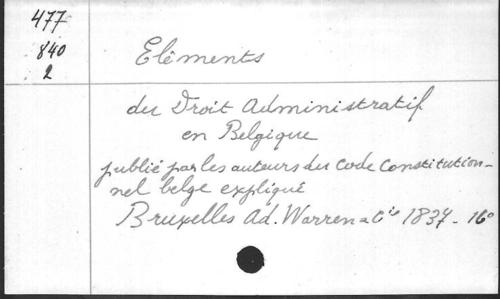 477
840
2
Eléments
du Droit Administratif
en Belgique
publié par les auteurs du Code Constitution-
nel belge expliqué
Bruxelles Ad. Warren & Cie 1837 - 16°